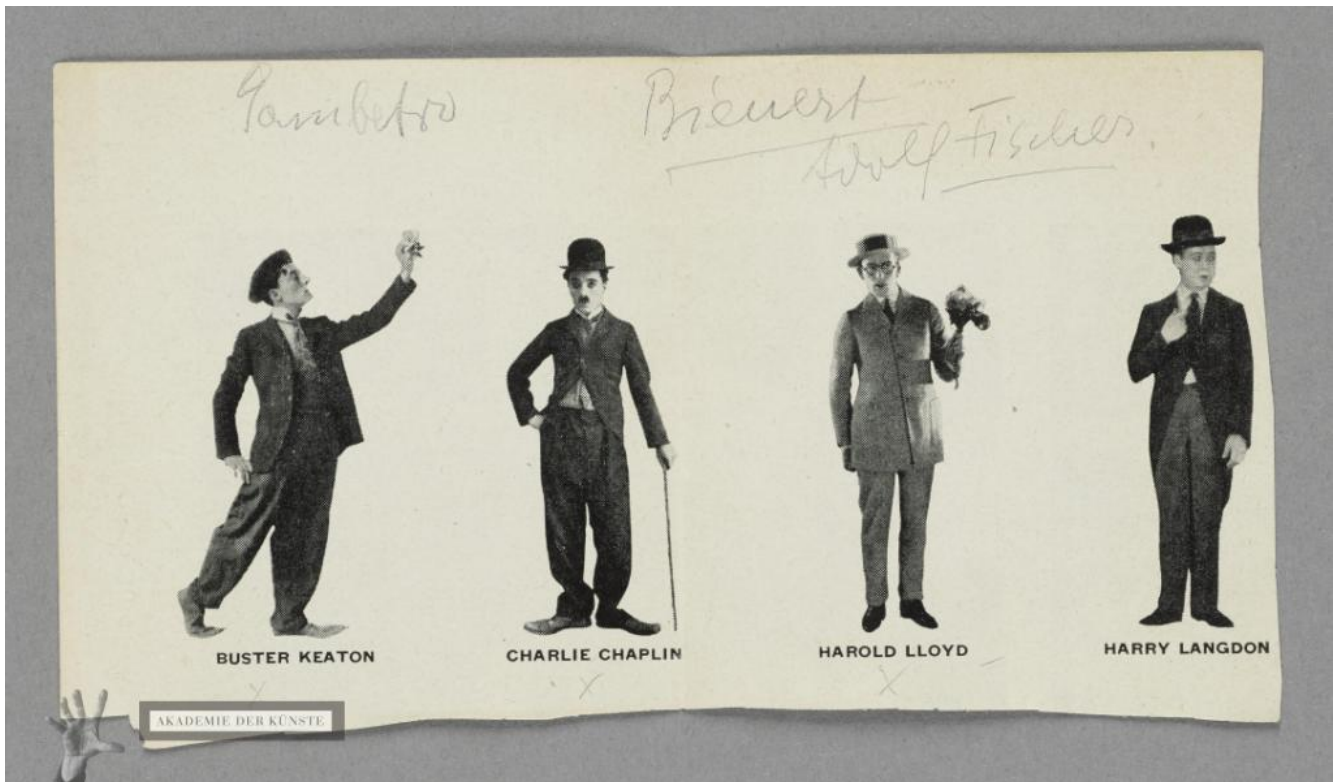 Bienert
Adolf Fischer.
BUSTER KEATON
CHARLIE CHAPLIN
HAROLD LLOYD
HARRY LANGDON
x
x
x
AKADEMIE DER KÜNSTE